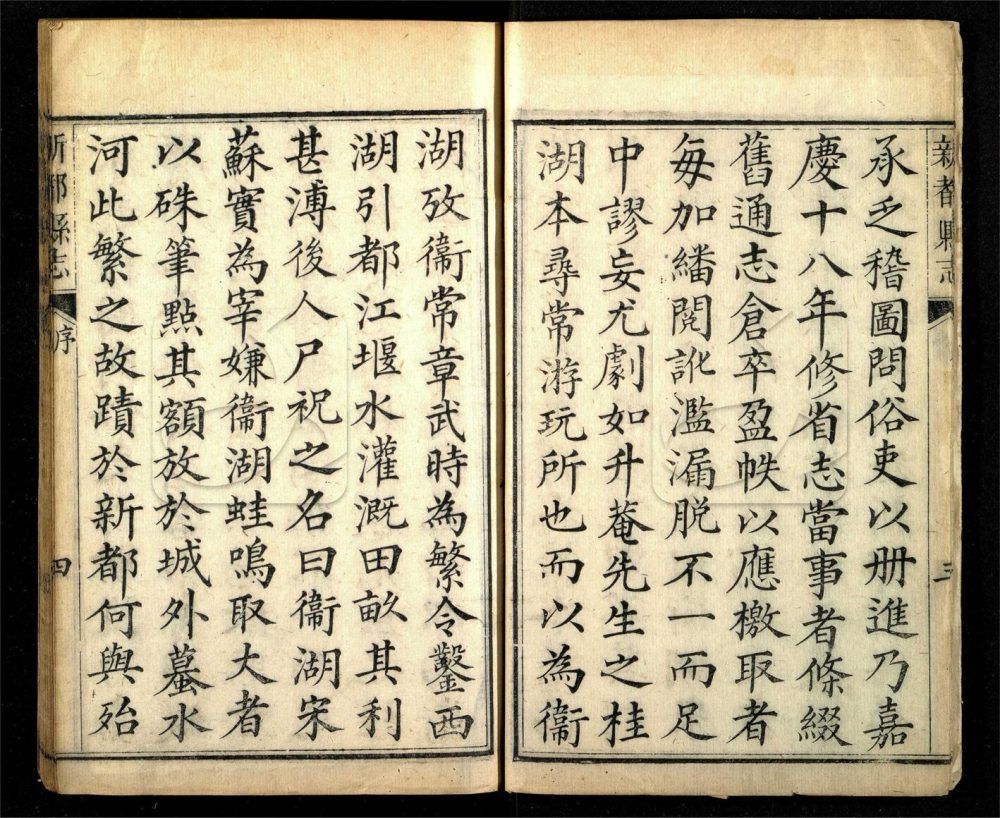 新都縣志
三
承乏稽圖問俗吏以册進乃嘉
慶十八年修省志當事者條綴
舊通志倉卒盈帙以應檄取者
每加繙閱訛濫漏脫不一而足
中謬妄尤劇如升菴先生之桂
湖本尋常游玩所也而以為衞
湖攷衞常章武時為繁令鑿西
湖引都江堰水灌溉田畝其利
甚溥後人尸祝之名曰衞湖宋
蘇實為宰嫌衞湖蛙鳴取大者
以硃筆點其額放於城外蟇水
河此繁之故蹟於新都何與殆
新都縣志
序
四